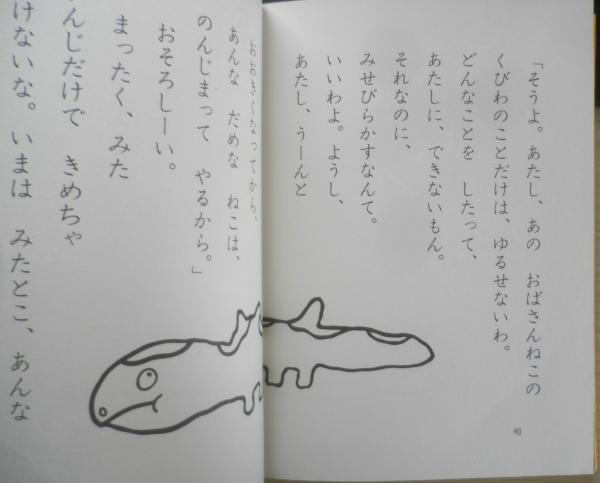 「そうよ。あたし、あの　おばさんねこの
くびわのことだけは、ゆるせないわ。
どんなことを　したって、
あたしに、できないもん。
それなのに、
みせびらかすなんて。
いいわよ。ようし、
あたし、うーんと
90
おおきくなってから、
あんな　だめな　ねこは、
のんじまって　やるから。」
おそろしーい。
まったく、みた
んじだけで　きめちゃ
けないな。いまは　みたとこ、あんな